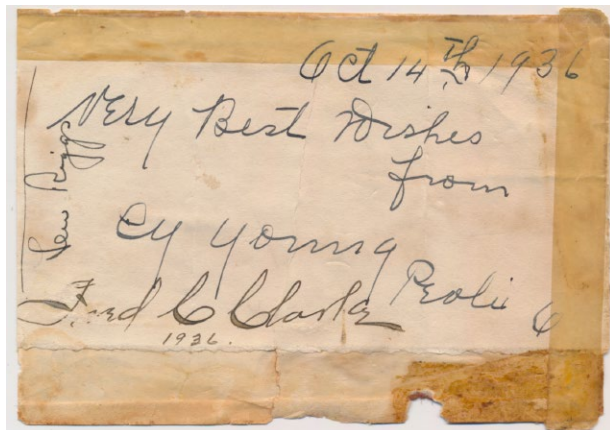 Oct 14th 1936
Very Best Wishes
from
Cy Young
Peoli O
Fred C Clarke
1936.
Lew Riggs